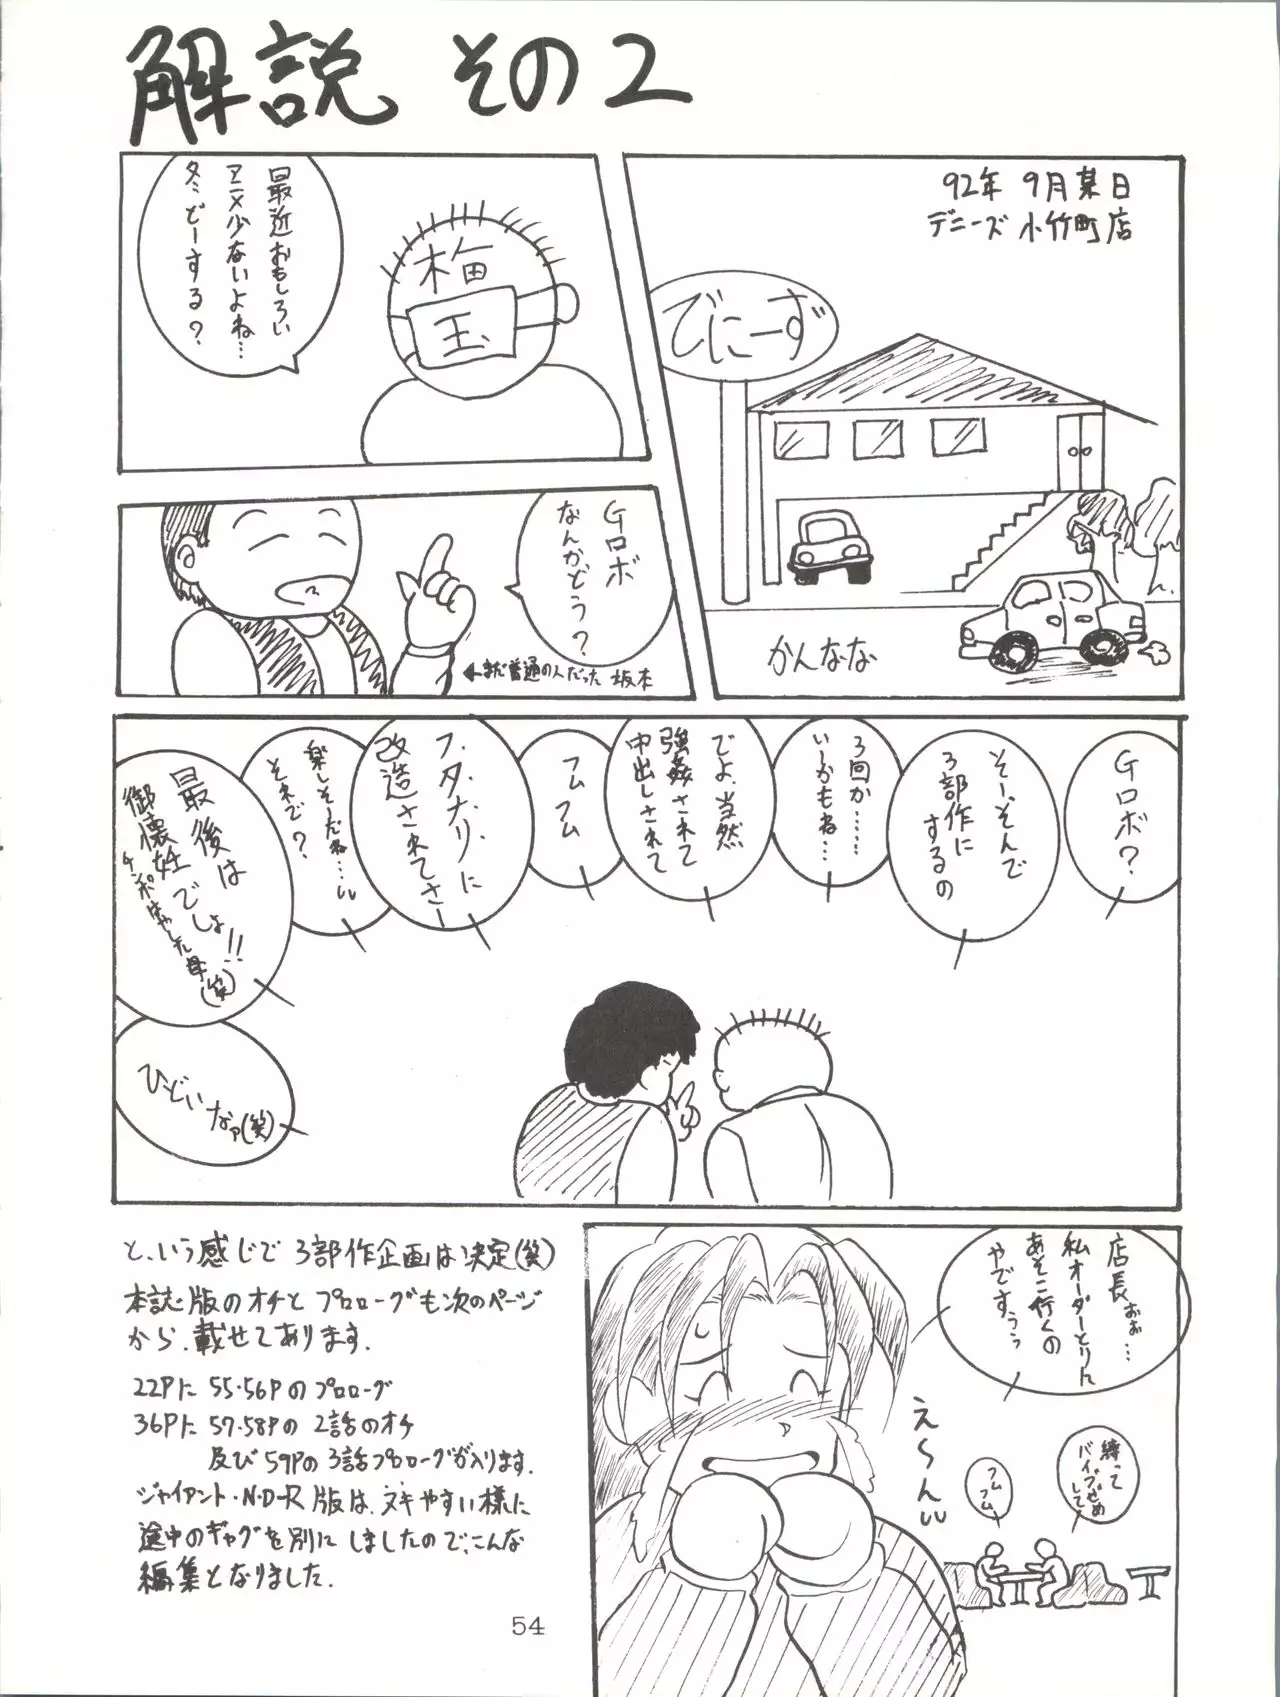 解説 その2
92年 9月某日
デニーズ 小竹町店
でにーず
かんなな
最近おもしろい
アニメ少ないよね…
冬どーする?
梅
玉
Gロボ
なんかどう?
←まだ普通の人だった 坂本
Gロボ?
そ〜、そんで
3部作に
するの
3回か……
い〜かもね…
でよ、当然
強姦されて
中出しされて
フムフム
フ,タ,ナ,リ,に
改造されてさ
楽しそ〜だね…
それで?
最後は
御懐妊でしょ!!
チンポはやした母(笑)
ひ〜どいなァ(笑)
店長ぉぉ…
私オーダーとりん
あそこ行くの
やですぅぅ
え〜ん
縛って
バイブぜめ
して
フムフム
と、いう感じで 3部作企画は決定(笑)
本誌版のオチと プロローグも次のページ
から、載せてあります.
22Pに 55・56Pのプロローグ
36Pに 57・58Pの 2話のオチ
及び 59Pの 3話プロローグが入ります.
ジャイアント・N・D-R版は、ヌキやすい様に
途中のギャグを別にしましたので、こんな
編集となりました.
54